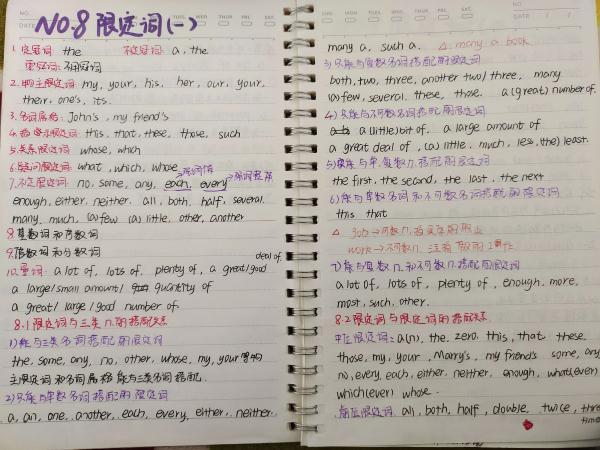 NO.8 限定词(一)
1. 定冠词: the 不定冠词: a, the
零冠词: 不用冠词
2. 物主限定词: my, your, his, her, our, your,
their, one's, its.
3. 名词属格: John's, my friend's
4. 指示限定词: this, that, these, those, such
5. 关系限定词: whose, which
6. 疑问限定词: what, which, whose
7. 不定限定词: no, some, any, each, every
enough, either, neither, all, both, half, several,
many, much, (a) few (a) little, other, another
8. 基数词和序数词
9. 倍数词和分数词
deal of.
10. 量词: a lot of, lots of, plenty of, a great/good
a large/small amount/ quantity of
a great/ large /good number of.
8-1 限定词与三类n.的搭配关系
1) 能与三类名词搭配的限定词
the, some, any, no, other, whose, my, your 等物
主限定词和名词属格能与三类名词搭配.
2) 只能与单数名词搭配的限定词
a, an, one, another, each, every, either, neither.
many a, such a. △. many a book
3) 只能与复数名词搭配的限定词
both, two, three, another two/three, many
(a) few, several, these, those. a (great) number of.
4) 只能与不可数名词搭配的限定词
a (little) bit of. a large amount of
a great deal of, (a) little, much, less, (the) least.
5) 只能与单,复数n.搭配的限定词
the first, the second, the last, the next
6) 能与单数名词和不可数名词搭配的限定词
this, that
△ job → 可数n.
work → 不可数n.
7) 能与复数n.和不可数n.搭配的限定词
a lot of, lots of, plenty of, enough, more,
most, such, other.
8-2 限定词与限定词的搭配关系
中位限定词: a(n), the, zero, this, that, these,
those, my, your, Marry's, my friend's some, any,
no, every, each, either, neither, enough, what(ever)
which(ever) whose.
前位限定词: all, both, half, double, twice, three
times